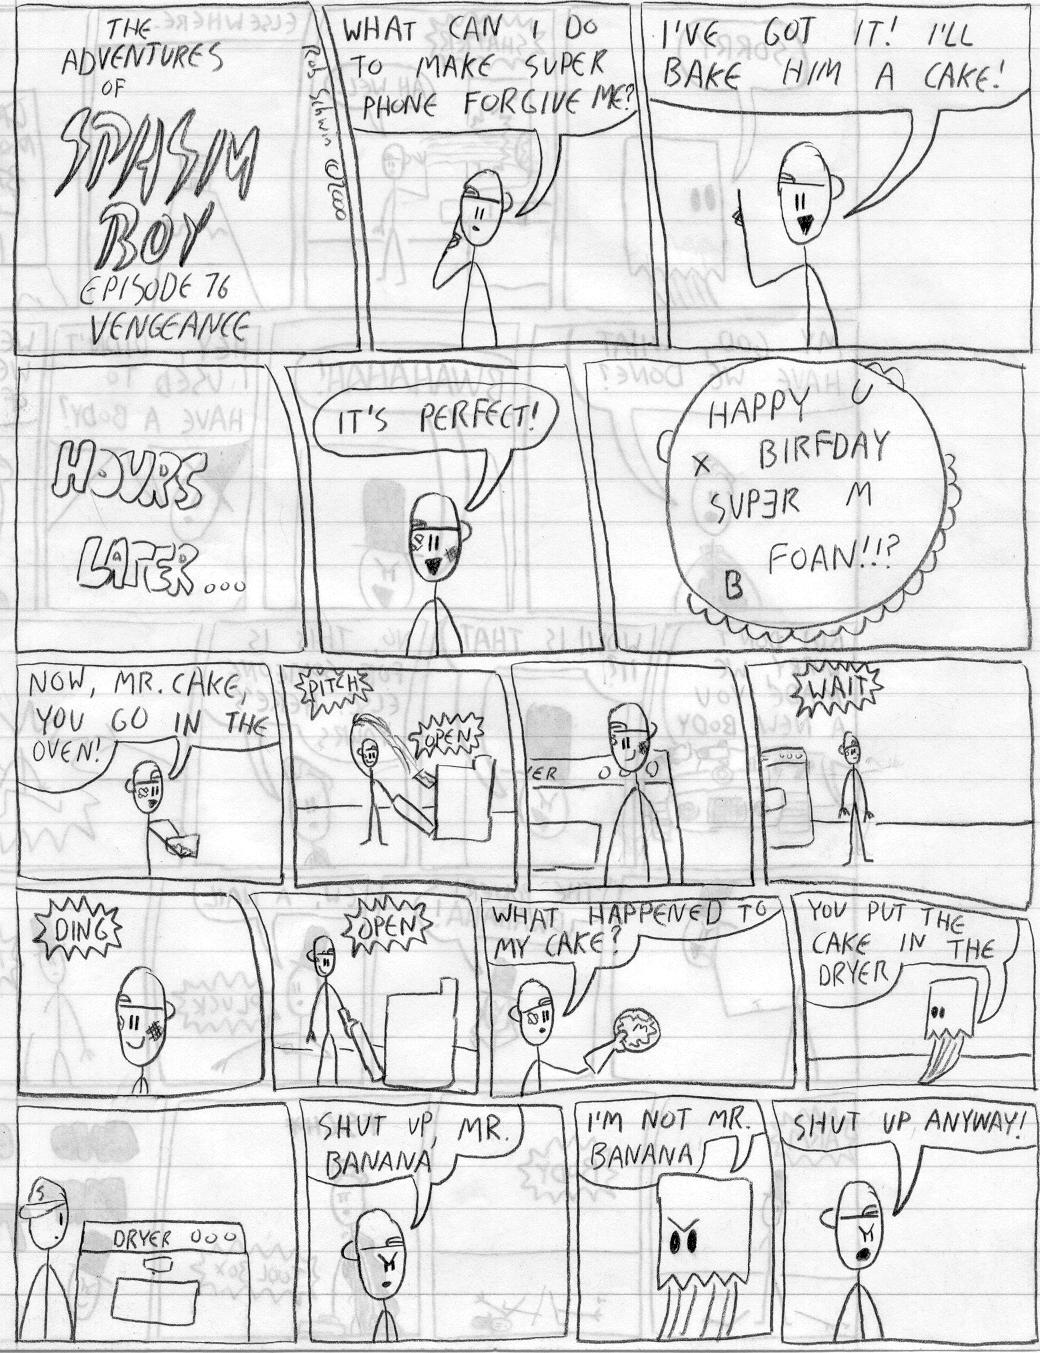 THE
ADVENTURES
OF
SPASM
BOY
EPISODE 76
VENGEANCE
Rob Schwin ©2000
WHAT CAN I DO
TO MAKE SUPER
PHONE FORGIVE ME?
I'VE GOT IT! I'LL
BAKE HIM A CAKE!
HOURS
LATER...
IT'S PERFECT!
HAPPY U
X BIRFDAY
SUPƎR M
FOAN!!?
B
NOW, MR. CAKE,
YOU GO IN THE
OVEN!
PITCH
OPEN
YER
WAIT
DING
OPEN
WHAT HAPPENED TO
MY CAKE?
YOU PUT THE
CAKE IN THE
DRYER
S
DRYER
SHUT UP, MR.
BANANA
I'M NOT MR.
BANANA
SHUT UP ANYWAY!